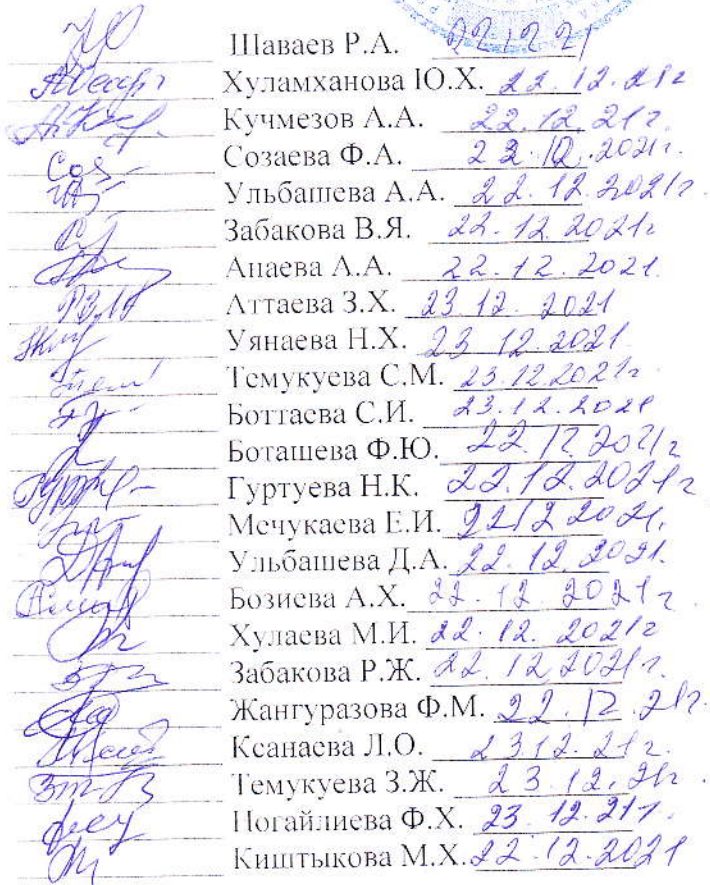 Шаваев Р.А. 22.12.21
Хуламханова Ю.Х. 22.12.21г
Кучмезов А.А. 22.12.21г.
Созаева Ф.А. 22.12.2021г.
Ульбашева А.А. 22.12.2021г
Забакова В.Я. 22.12.2021г
Анаева А.А. 22.12.2021.
Аттаева З.Х. 23.12.2021
Уянаева Н.Х. 23.12.2021.
Темукуева С.М. 23.12.2021г
Боттаева С.И. 23.12.2021
Боташева Ф.Ю. 22.12.2021г
Гуртуева Н.К. 22.12.2021г
Мечукаева Е.И. 22.12.2021.
Ульбашева Д.А. 22.12.2021.
Бозиева А.Х. 22.12.2021г
Хулаева М.И. 22.12.2021г
Забакова Р.Ж. 22.12.2021г.
Жангуразова Ф.М. 22.12.21г.
Ксанаева Л.О. 23.12.21г.
Темукуева З.Ж. 23.12.21г
Ногайлиева Ф.Х. 23.12.21г.
Киштыкова М.Х. 22.12.2021